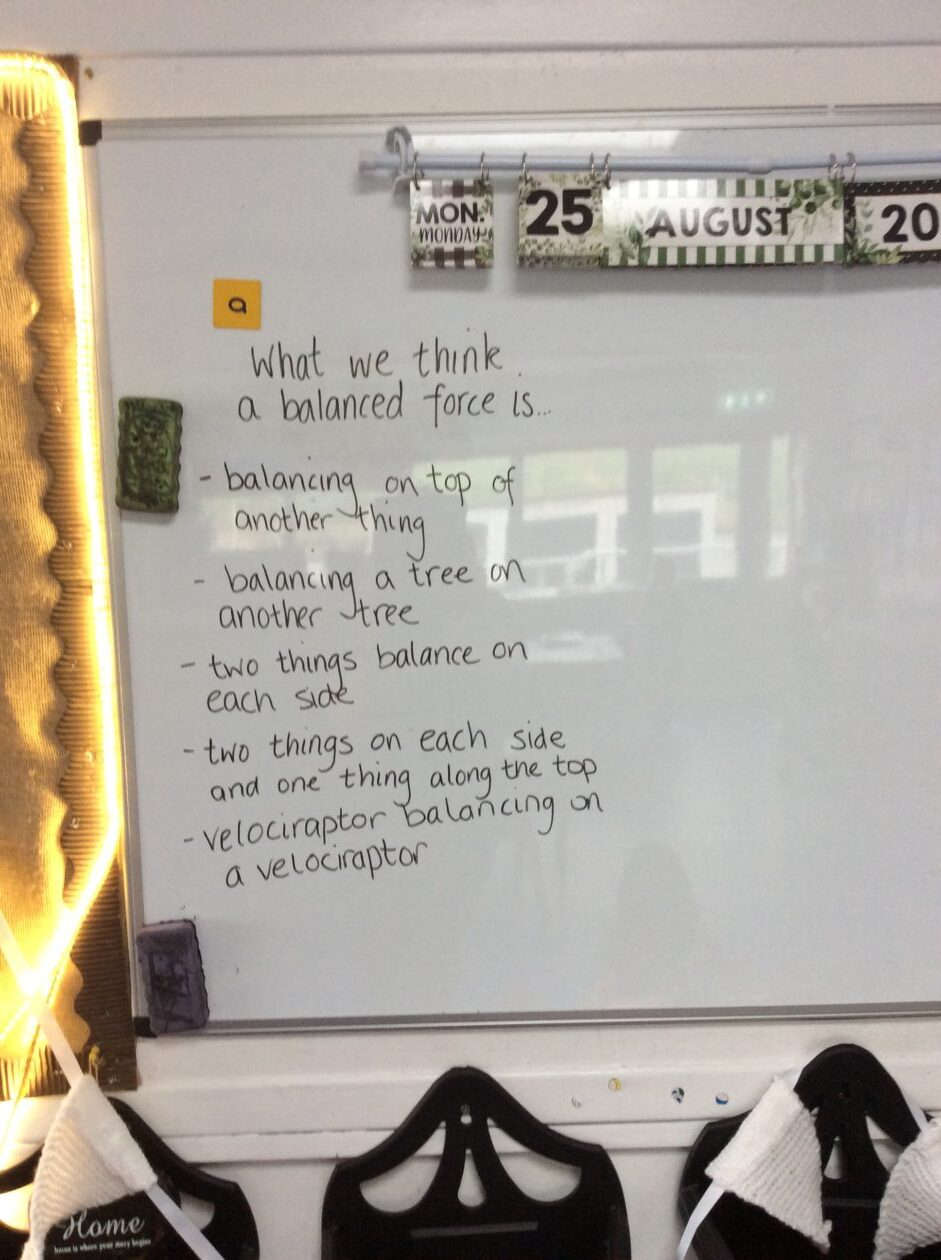 MON.
MONDAY
25
AUGUST
20
a
What we think
a balanced force is...
- balancing on top of
another thing
- balancing a tree on
another tree
- two things balance on
each side
- two things on each side
and one thing along the top
- velociraptor balancing on
a velociraptor
Home
home is where your story begins